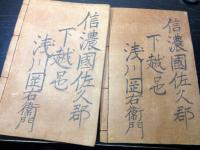 信濃國佐久郡
下越邑
浅川団右衛門
信濃國佐久郡
下越邑
浅川団右衛門